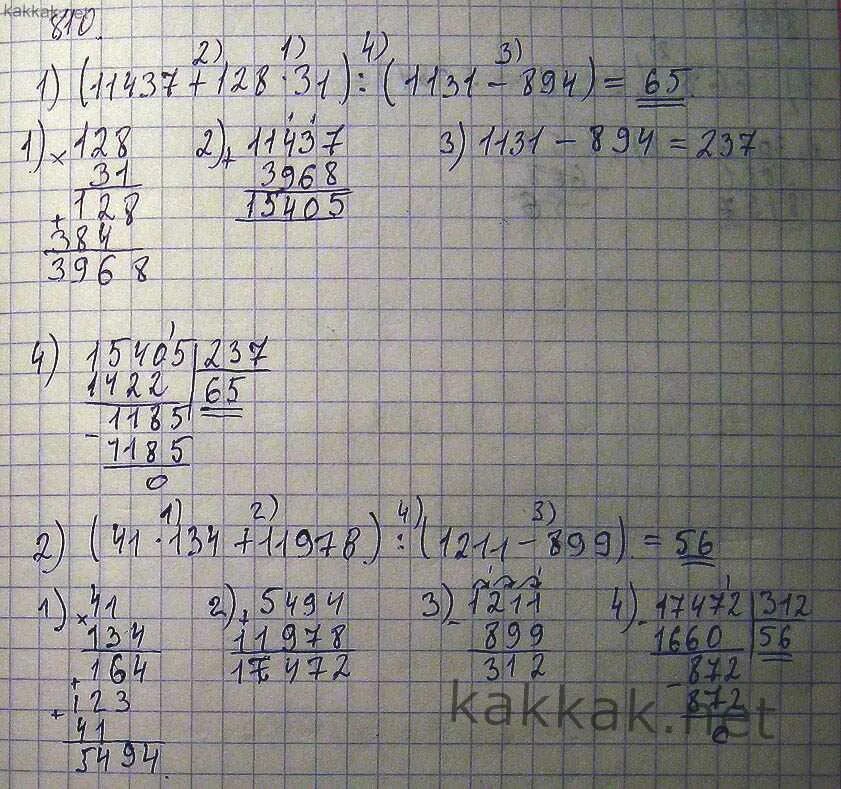 kakkak.net
810.
2) 1) 4) 3)
1) (11437 + 128 · 31) : (1131 − 894) = 65
1) × 128
31
+ 128
384
3968
2) + 11437
3968
15405
3) 1131 − 894 = 237
4) 15405 | 237
1422 | 65
− 1185
1185
0
1) 2) 4) 3)
2) (41 · 134 + 11978) : (1211 − 899) = 56
1) × 41
134
+ 164
+ 123
41
5494
2) + 5494
11978
17472
3) − 1211
899
312
4) − 17472 | 312
1660 | 56
− 872
872
0
kakkak.net